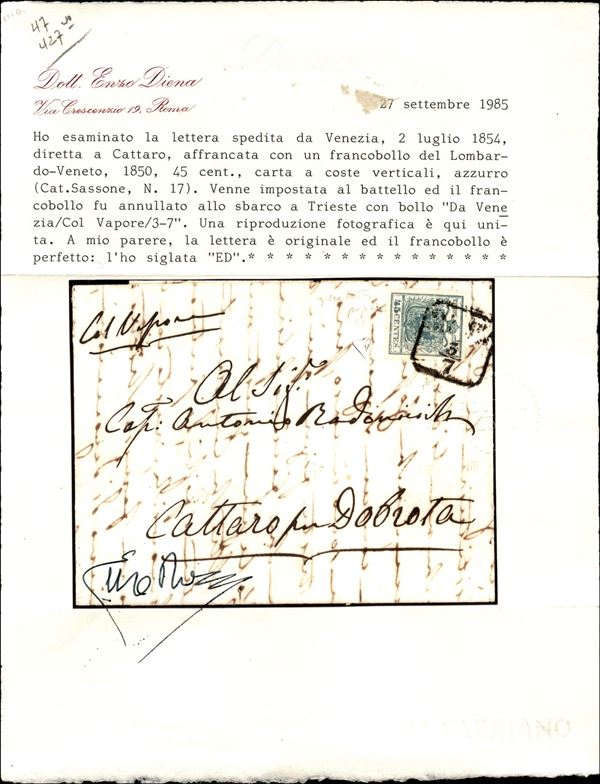 47
427
Dott. Enzo Diena
Via Crescenzio 19, Roma
27 settembre 1985
Ho esaminato la lettera spedita da Venezia, 2 luglio 1854,
diretta a Cattaro, affrancata con un francobollo del Lombar-
do-Veneto, 1850, 45 cent., carta a coste verticali, azzurro
(Cat.Sassone, N. 17). Venne impostata al battello ed il fran-
cobollo fu annullato allo sbarco a Trieste con bollo "Da Vene
zia/Col Vapore/3-7". Una riproduzione fotografica è qui uni-
ta. A mio parere, la lettera è originale ed il francobollo è
perfetto: l'ho siglata "ED".* * * * * * * * * * * * * * *
Col Vapore
45 CENTES.
3
7
Al Sig.
Cap. Antonio
Cattaro per Dobrota
FABRIANO